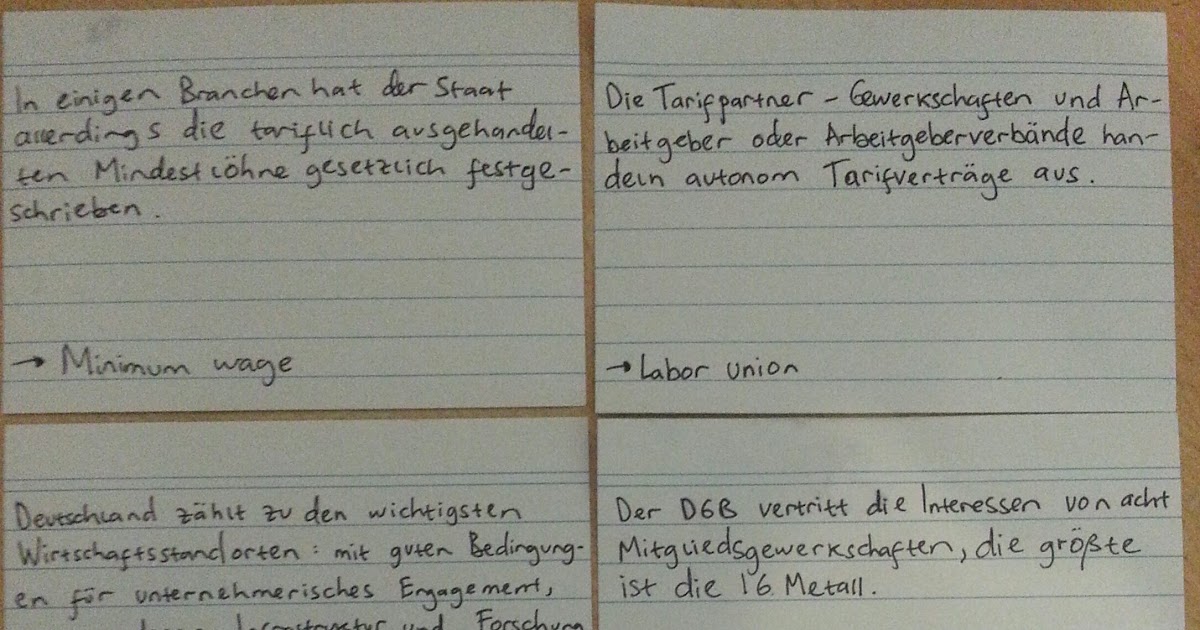 In einigen Branchen hat der Staat
allerdings die tariflich ausgehandel-
ten Mindestlöhne gesetzlich festge-
schrieben.
→ Minimum wage
Die Tarifpartner - Gewerkschaften und Ar-
beitgeber oder Arbeitgeberverbände han-
deln autonom Tarifverträge aus.
→ Labor union
Deutschland zählt zu den wichtigsten
Wirtschaftsstandorten: mit guten Bedingung-
en für unternehmerisches Engagement,
und Forschung
Der DGB vertritt die Interessen von acht
Mitgliedsgewerkschaften, die größte
ist die IG Metall.